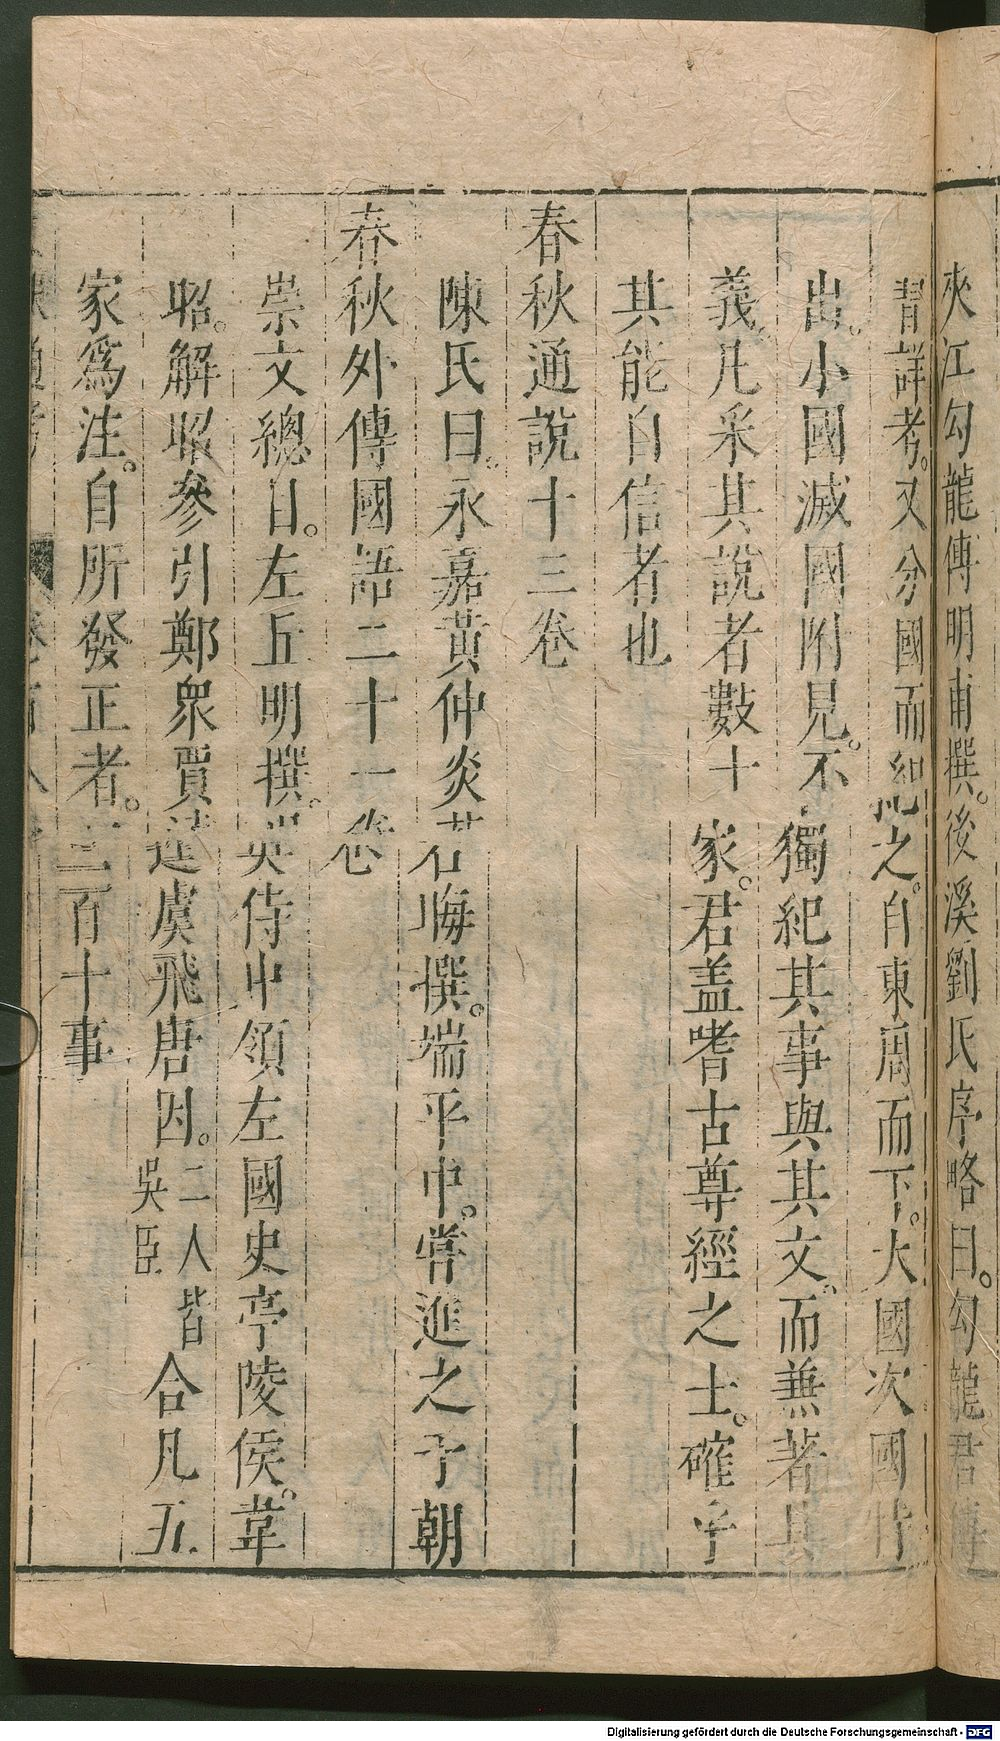 夾江勾龍傳明甫撰。後溪劉氏序略曰。勾龍君傳
詳考。又分國而紀之。自東周而下。大國次國皆
出。小國滅國附見。不獨紀其事與其文。而兼著其
義。凡采其說者數十家。君盖嗜古尊經之士。確乎
其能自信者也
春秋通說十三卷
陳氏曰。永嘉黃仲炎若晦撰。端平中。嘗進之于朝
春秋外傳國語二十一卷
崇文總目。左丘明撰。吳侍中領左國史亭陵侯韋
昭解昭參引鄭衆賈逵虞飛唐因。二人皆吳臣合凡五
家爲注。自所發正者。三百十事
Digitalisierung gefördert durch die Deutsche Forschungsgemeinschaft - DFG